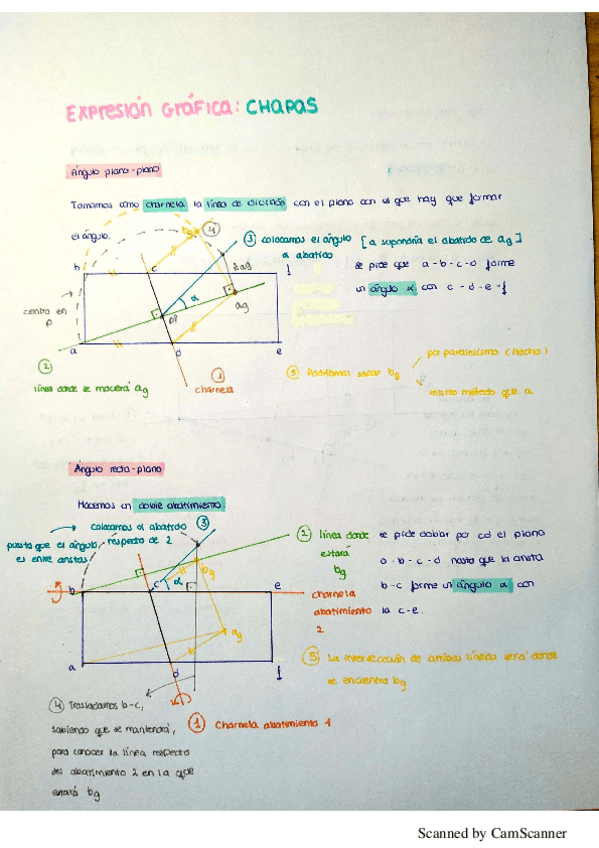 EXPRESIÓN GRÁFICA: CHAPAS
Ángulo plano-plano
Tomamos como charnela la línea de dicción con el plano con el que hay que formar
el ángulo.
4
3 colocamos el ángulo [α supondría el abatido de ag]
α abatido
b
c
f
se pide que a-b-c-d forme
un ángulo α con c-d-e-f
α
ag
centro en
P
a
d
e
2
línea donde se moverá ag
1
charnela
5 Podríamos sacar bg
por paralelismo (hecho)
mismo método que a
Ángulo recta-plano
Hacemos un doble abatimiento
colocamos α abatido
respecto de 2
3
puesto que el ángulo
es entre aristas
2 línea donde
estará
bg
se pide doblar por cd el plano
a-b-c-d hasta que la arista
b-c forme un ángulo α con
la c-e.
b
c
α
bg
e
charnela
abatimiento
2
ag
a
d
f
5 La intersección de ambas líneas será donde
se encuentra bg
4 Trasladamos b-c,
sabiendo que se mantendrá,
para conocer la línea respecto
del abatimiento 2 en la que
estará bg
1 Charnela abatimiento 1
Scanned by CamScanner